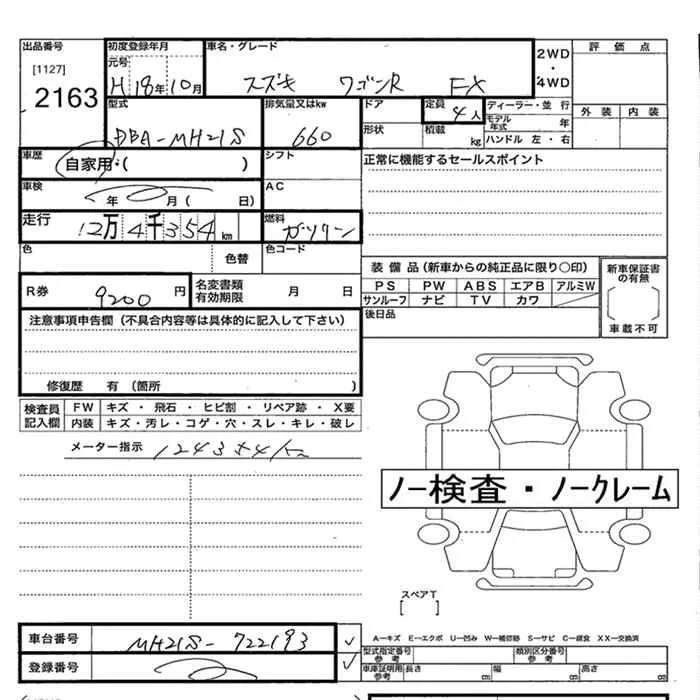 出品番号 初度登録年月 車名・グレード 評価点
[1127] 元号 2WD
2163 H18年10月 スズキ ワゴンR FX ・4WD
型式 排気量又はkw ドア 定員 4人 ディーラー・並行 外装 内装
DBA-MH21S 660 形状 積載 kg モデル年式 年
ハンドル 左・右
車歴 自家用・( ) シフト 正常に機能するセールスポイント
車検 年 月( 日) AC
走行 12万4千354km 燃料 ガソリン
色 色替 色コード
装備品(新車からの純正品に限り〇印) 新車保証書の有無
R券 9200円 名変書類有効期限 月 日 PS PW ABS エアB アルミW
サンルーフ ナビ TV カワ
注意事項申告欄(不具合内容等は具体的に記入して下さい) 後日品 車載不可
修復歴 有(箇所 )
検査員記入欄 FW キズ・飛石・ヒビ割・リペア跡・X要
内装 キズ・汚レ・コゲ・穴・スレ・キレ・破レ
メーター指示 124354km
ノー検査・ノークレーム
スペアT
[ ]
車台番号 MH21S-722193 ✓ A−キズ E−エクボ U−凹み W−補修跡 S−サビ C−腐食 XX−交換済
型式指定番号 参考 類別区分番号 参考
登録番号 ✓ 車庫証明用参考 長さ cm 幅 cm 高さ cm